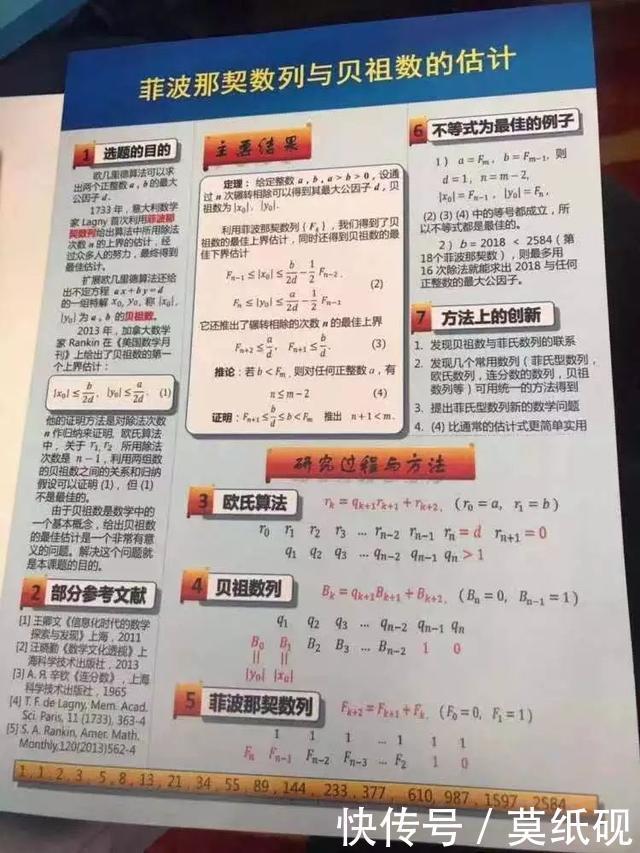 菲波那契数列与贝祖数的估计
1 选题的目的
欧几里德算法可以求
出两个正整数 a, b 的最大
公因子 d.
1733 年, 意大利数学
家 Lagny 首次利用菲波那
契数列给出算法中所用除法
次数 n 的上界的估计, 经
过众人的努力, 最终得到
最佳估计。
扩展欧几里德算法还给
出不定方程 ax + by = d
的一组特解 x₀, y₀, 称 |x₀|,
|y₀| 为 a, b 的贝祖数。
2013 年, 加拿大数学
家 Rankin 在《美国数学月
刊》上给出了贝祖数的第一
个上界估计：
|x₀| ≤ b/2d, |y₀| ≤ a/2d. (1)
他的证明方法是对除法次数
n 作归纳来证明, 欧氏算法
中, 关于 r₁, r₂ 所用除法
次数是 n − 1, 利用两组数
的贝祖数之间的关系和归纳
假设可以证明 (1), 但 (1)
不是最佳的。
由于贝祖数是数学中的
一个基本概念, 给出贝祖数
的最佳估计是一个非常有意
义的问题。解决这个问题就
是本课题的目的。
2 部分参考文献
[1] 王卿文《信息化时代的数学
探索与发现》上海, 2011
[2] 汪晓勤《数学文化透视》上
海科学技术出版社, 2013
[3] A. Я. 辛钦《连分数》, 上海
科学技术出版社, 1965
[4] T. F. de Lagny, Mem. Acad.
Sci. Paris, 11 (1733), 363-4
[5] S. A. Rankin, Amer. Math.
Monthly,120(2013)562-4
主要结果
定理：给定整数 a, b, a > b > 0, 设通
过 n 次辗转相除可以得到其最大公因子 d, 贝
祖数为 |x₀|, |y₀|.
利用菲波那契数列 { Fₖ }, 我们得到了贝
祖数的最佳上界估计, 同时还得到贝祖数的最
佳下界估计
Fₙ₋₁ ≤ |x₀| ≤ b/2d − 1/2 Fₙ₋₂,
(2)
Fₙ ≤ |y₀| ≤ a/2d − 1/2 Fₙ₋₂
它还推出了辗转相除的次数 n 的最佳上界
Fₙ₊₂ ≤ a/d, Fₙ₊₁ ≤ b/d. (3)
推论：若 b < Fₘ, 则对任何正整数 a, 有
n ≤ m − 2 (4)
证明：Fₙ₊₁ ≤ b/d ≤ b < Fₘ 推出 n + 1 < m.
研究过程与方法
3 欧氏算法 rₖ = qₖ₊₁rₖ₊₁ + rₖ₊₂, (r₀ = a, r₁ = b)
r₀ r₁ r₂ r₃ … rₙ₋₂ rₙ₋₁ rₙ = d rₙ₊₁ = 0
q₁ q₂ q₃ … qₙ₋₂ qₙ₋₁ qₙ > 1
4 贝祖数列 Bₖ = qₖ₊₁Bₖ₊₁ + Bₖ₊₂, (Bₙ = 0, Bₙ₋₁ = 1)
q₁ q₂ q₃ … qₙ₋₂ qₙ₋₁ qₙ
B₀ B₁ B₂ B₃ … Bₙ₋₂ 1 0
|| ||
|y₀| |x₀|
5 菲波那契数列 Fₖ₊₂ = Fₖ₊₁ + Fₖ, (F₀ = 0, F₁ = 1)
1 1 1 … 1 1 1
Fₙ Fₙ₋₁ Fₙ₋₂ Fₙ₋₃ … F₂ 1 0
6 不等式为最佳的例子
1) a = Fₘ, b = Fₘ₋₁, 则
d = 1, n = m − 2,
|x₀| = Fₙ₋₁, |y₀| = Fₙ,
(2) (3) (4) 中的等号都成立, 所
以不等式都是最佳的。
2) b = 2018 < 2584 (第
18个菲波那契数), 则最多用
16 次除法就能求出 2018 与任何
正整数的最大公因子。
7 方法上的创新
1. 发现贝祖数与菲氏数列的联系
2. 发现几个常用数列 (菲氏型数列,
欧氏数列, 连分数的数列, 贝祖
数列等) 可用统一的方法得到
3. 提出菲氏型数列新的数学问题
4. (4) 比通常的估计式更简单实用
1, 1, 2, 3, 5, 8, 13, 21, 34, 55, 89, 144, 233, 377, 610, 987, 1597, 2584
快传号 / 莫纸砚